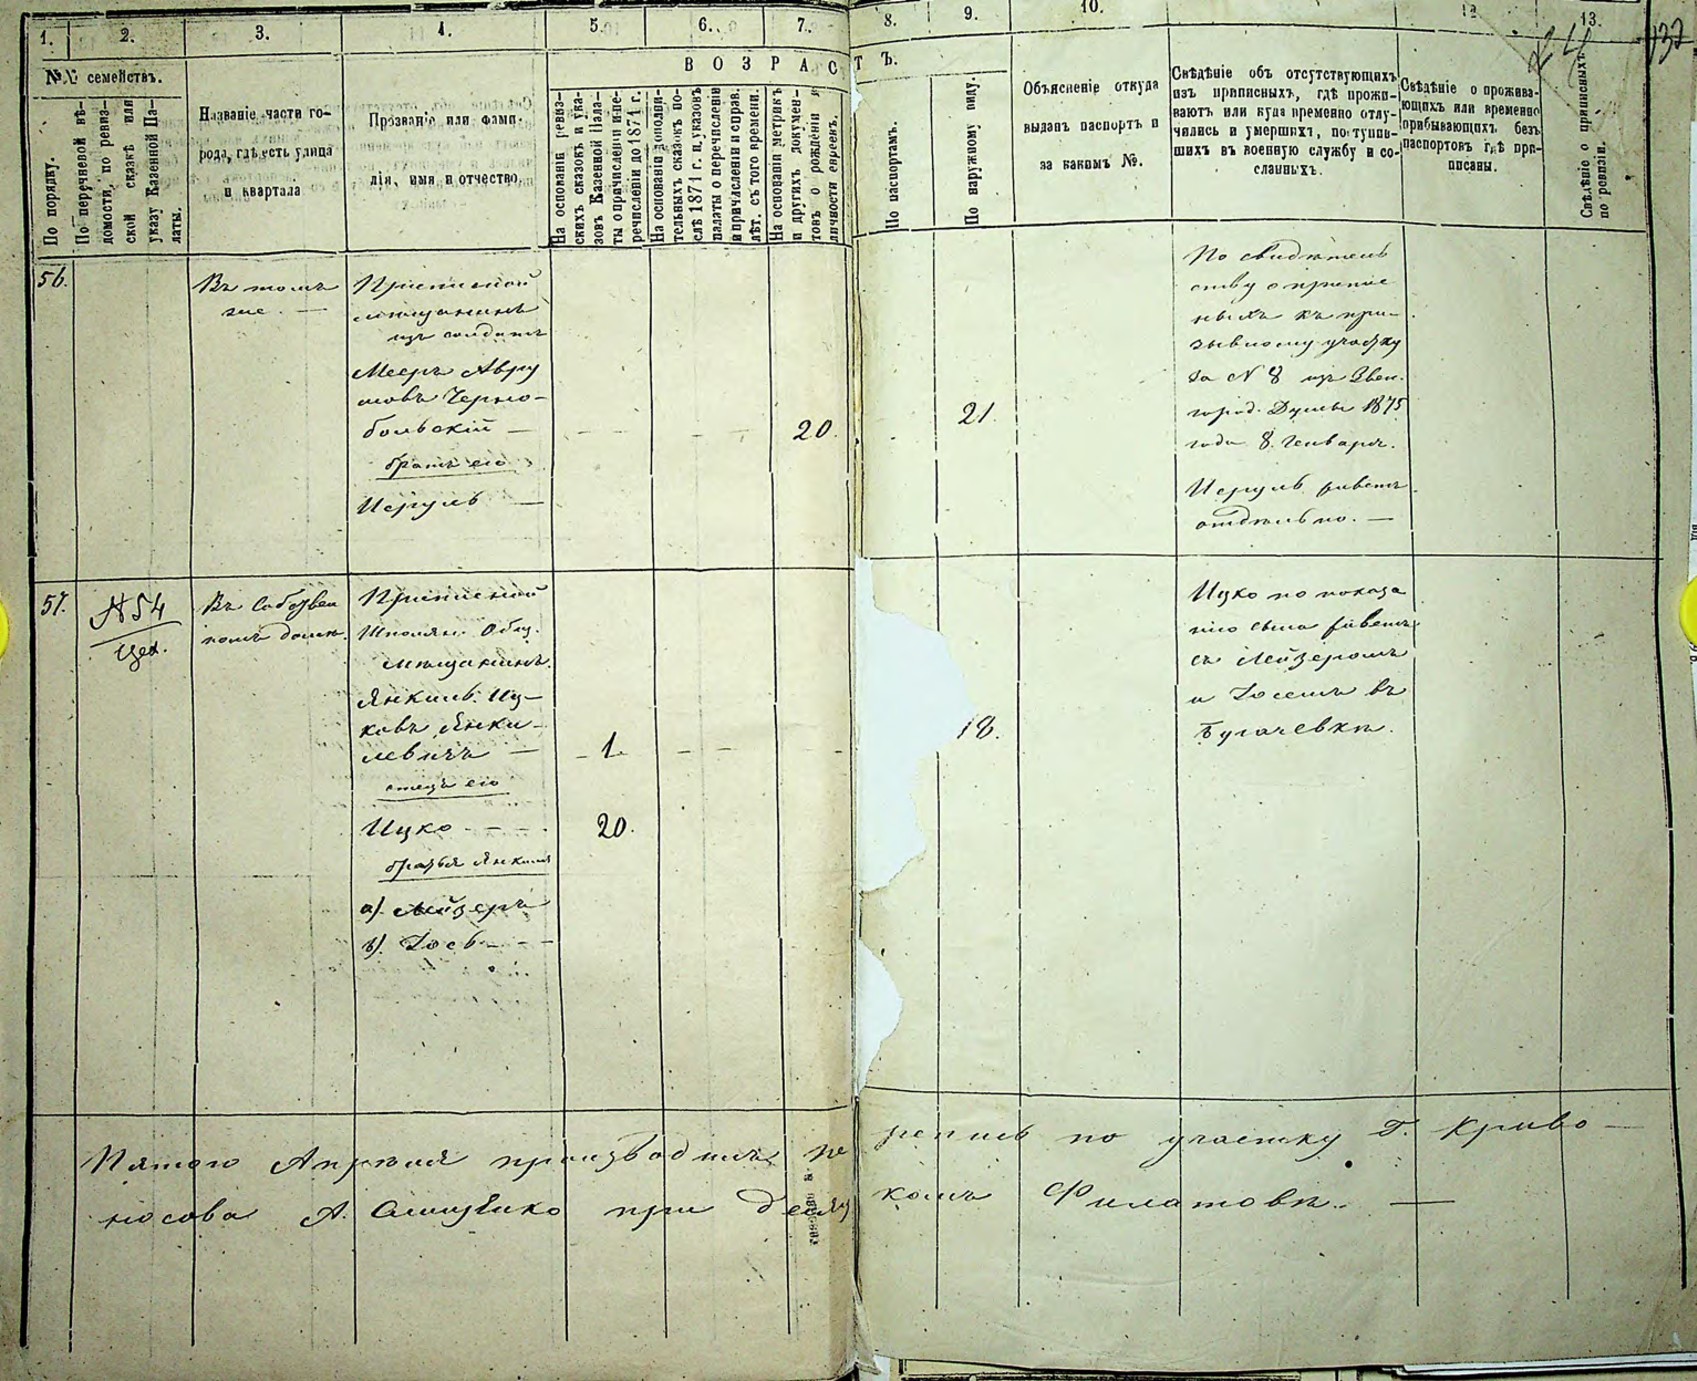 1. 2. 3. 4. 5. 6. 7. 8. 9. 10. 12 13.
24 132
№№ семействъ.
По порядку.
По перечневой вѣ-
домости, по ревиз-
ской сказкѣ или
указу Казенной Па-
латы.
Названіе части го-
рода, гдѣ есть улица
и квартала
Прозваніе или фами-
лія, имя и отчество.
ВОЗРАСТЪ.
На основаніи ревиз-
скихъ сказокъ и ука-
зовъ Казенной Пала-
ты о причисленіи и пе-
речисленіи до 1871 г.
На основаніи дополни-
тельныхъ сказокъ по-
слѣ 1871 г. и указовъ
палаты о перечисленіи
и причисленіи и справ.
лѣт. съ того времени.
На основаніи метрикъ
и другихъ докумен-
товъ о рожденіи и
личности евреевъ.
По паспортамъ.
По наружному виду.
Объясненіе откуда
выданъ паспортъ и
за какимъ №.
Свѣдѣніе объ отсутствующихъ
изъ приписныхъ, гдѣ прожи-
ваютъ или куда временно отлу-
чились и умершихъ, поступив-
шихъ въ военную службу и со-
сланныхъ.
Свѣдѣніе о прожива-
ющихъ или временно
прибывающихъ безъ
паспортовъ гдѣ при-
писаны.
Свѣдѣніе о приписныхъ
по ревизіи.
56.
Въ томъ
же. —
Приписной
мѣщанинъ
изъ солдатъ
Мееръ Авру
мовъ Черно-
больскій —
братъ его
Исруль —
20.
21.
По свидѣтель
ству о припис
ныхъ къ при-
зывному участку
за № 8 изъ Звен.
город. Думы 1875
года 8. Генваря.
Исруль живетъ
отдѣльно. —
57.
№ 54
Цех.
Въ собствен
номъ домѣ.
Приписной
Шполян. Общ.
мѣщанинъ.
Янкель Иц-
ковъ Янки-
левичъ —
отецъ его
Ицко - - -
братья Янкеля
а). Лейзеръ
б). Іось - - -
1.
20.
18.
Ицко по показа
нію сына живетъ
съ Лейзеромъ
и Іосемъ въ
Бугачевкѣ.
Пятого Апрѣля производилъ пе
репись по участку Г. Криво —
носова А. при десят
комъ Филатовѣ. —